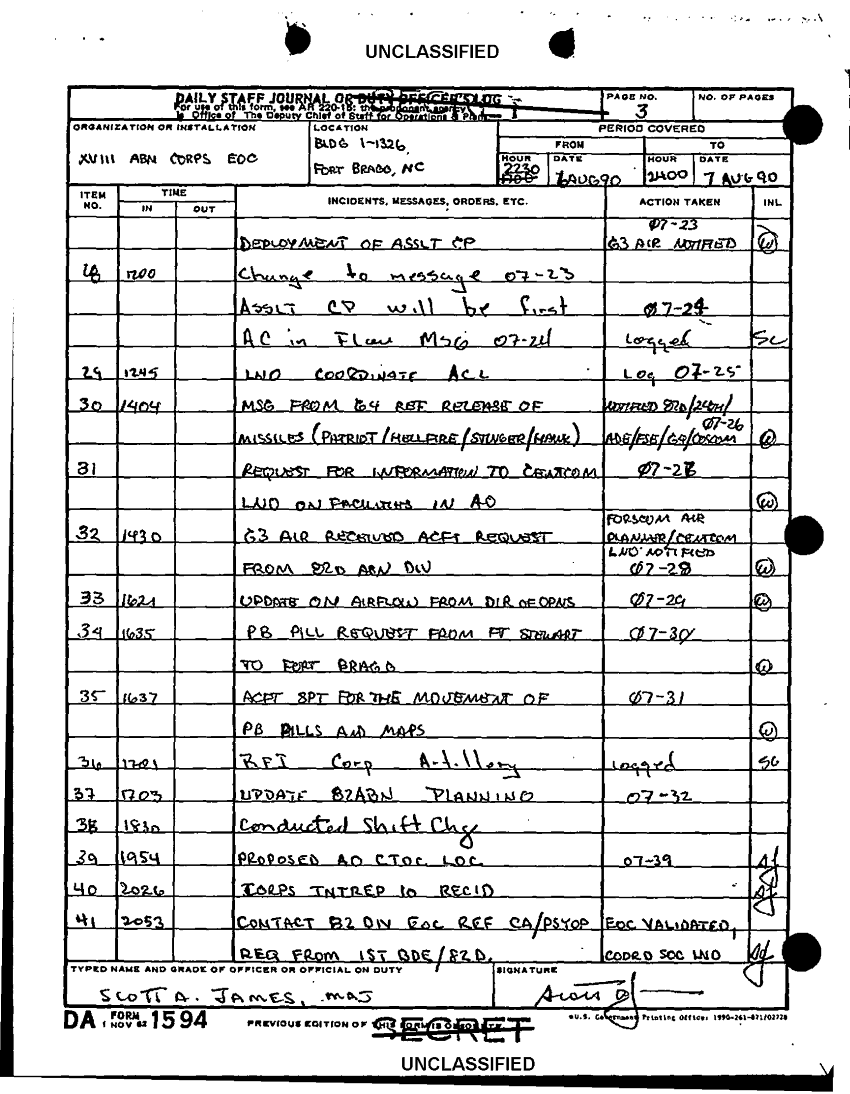 UNCLASSIFIED
DAILY STAFF JOURNAL OR DUTY OFFICER'S LOG
For use of this form, see AR 220-15; the proponent agency
is Office of The Deputy Chief of Staff for Operations & Plans
PAGE NO.
3
NO. OF PAGES
ORGANIZATION OR INSTALLATION
XVIII ABN CORPS EOC
LOCATION
BLDG 1-1326,
FORT BRAGG, NC
PERIOD COVERED
FROM
TO
HOUR
2230
DATE
6AUG90
HOUR
2400
DATE
7 AUG 90
ITEM NO.
TIME
IN
OUT
INCIDENTS, MESSAGES, ORDERS, ETC.
ACTION TAKEN
INL
07-23
DEPLOYMENT OF ASSLT CP G3 AIR NOTIFIED W
28 1200 Change to message 07-23
ASSLT CP will be first 07-24
AC in Flow MSG 07-24 Logged SC
29 1245 LNO COORDINATE ACL LOG 07-25
30 1404 MSG FROM G4 REF RELEASE OF NOTIFIED 82D/24TH/
07-26
MISSILES (PATRIOT/HELLFIRE/STINGER/HAWK) ADE/FSE/G4/COSCOM W
31 REQUEST FOR INFORMATION TO CENTCOM 07-27
LNO ON FACILITIES IN AO W
32 1430 G3 AIR RECEIVED ACFT REQUEST FORSCOM AIR
PLANNER/CENTCOM
LNO NOTIFIED
FROM 82D ABN DIV 07-28 W
33 1621 UPDATE ON AIRFLOW FROM DIR OF OPNS 07-29 W
34 1635 PB PILL REQUEST FROM FT STEWART 07-30
TO FORT BRAGG W
35 1637 ACFT SPT FOR THE MOVEMENT OF 07-31
PB PILLS AND MAPS W
36 1701 RFI Corp Artillery Logged SC
37 1703 UPDATE 82ABN PLANNING 07-32
38 1830 Conducted Shift Chg
39 1954 PROPOSED AO CTOC LOC 07-39
40 2026 CORPS INTREP 10 RECID
41 2053 CONTACT 82 DIV EOC REF CA/PSYOP EOC VALIDATED,
REQ FROM 1ST BDE/82D. CODRD SOC LNO
TYPED NAME AND GRADE OF OFFICER OR OFFICIAL ON DUTY
SCOTT A. JAMES, MAJ
SIGNATURE
DA FORM 1 NOV 62 1594
PREVIOUS EDITION OF THIS FORM IS OBSOLETE.
SECRET
U.S. Government Printing Office: 1990-261-871/02728
UNCLASSIFIED